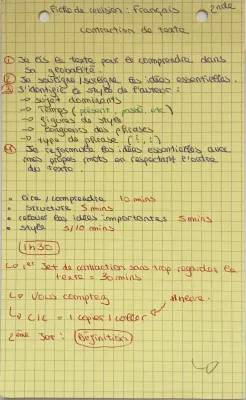 Fiche de révision : Français
2nde
contraction de texte
① Je lis le texte pour le comprendre dans
sa globalité
② Je souligne/surligne les idées essentielles.
③ J'identifie le style de l'auteur :
→ sujet dominants
→ Temps (présent, passé, etc)
→ figures de style
→ longueurs des phrases
→ type de phrase (?, !)
④ Je reformule les idées essentielles avec
mes propres mots en respectant l'ordre
du texte.
• lire / comprendre 10 mins
• structure 5 mins
• relever les idées importantes 5 mins
• style 5/10 mins
1h30
↳ 1er Jet de contraction sans trop regarder le
texte = 30 mins
↳ Vous comptez
↳ C/C = 1 copier / coller
2ème Jet : Définition